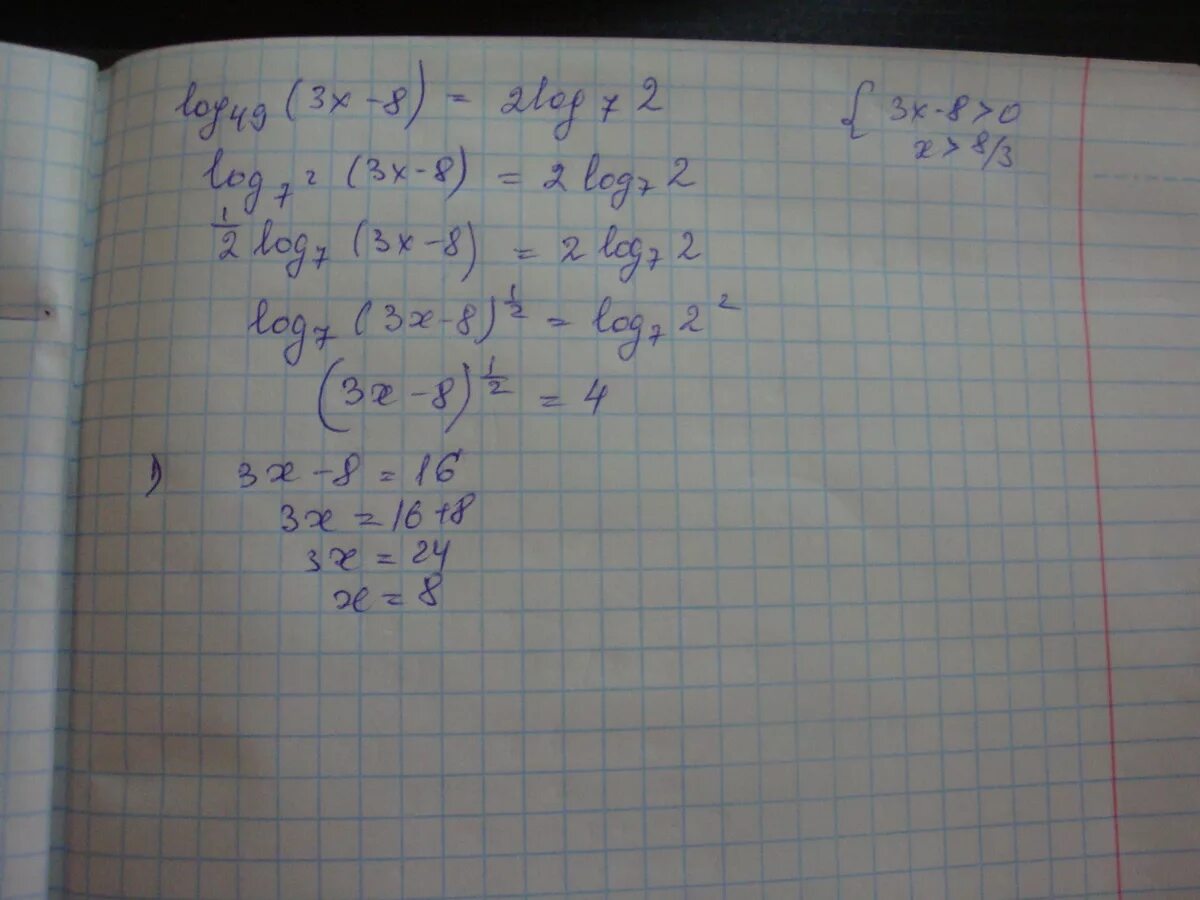 log₄₉ (3x-8) = 2log₇ 2
{ 3x-8>0
x> 8/3
log₇² (3x-8) = 2 log₇ 2
1/2 log₇ (3x-8) = 2 log₇ 2
log₇ (3x-8)^1/2 = log₇ 2²
(3x-8)^1/2 = 4
1) 3x-8=16
3x=16+8
3x=24
x=8